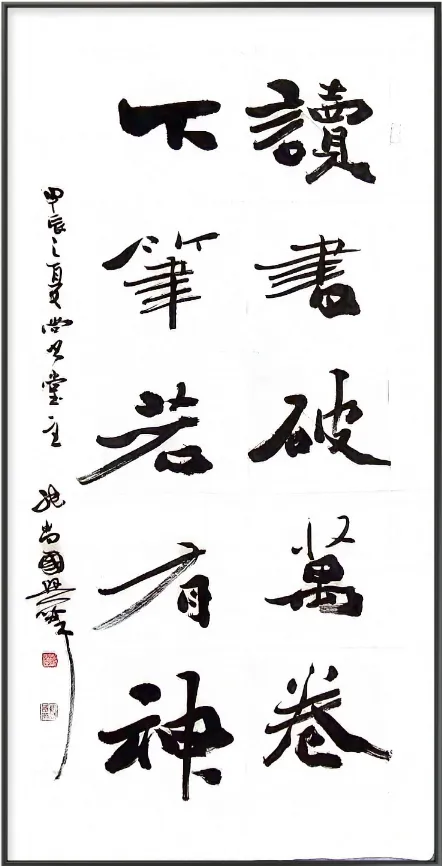 讀書破萬卷
下筆若有神
甲辰之夏尚
堂主
尚國興筆